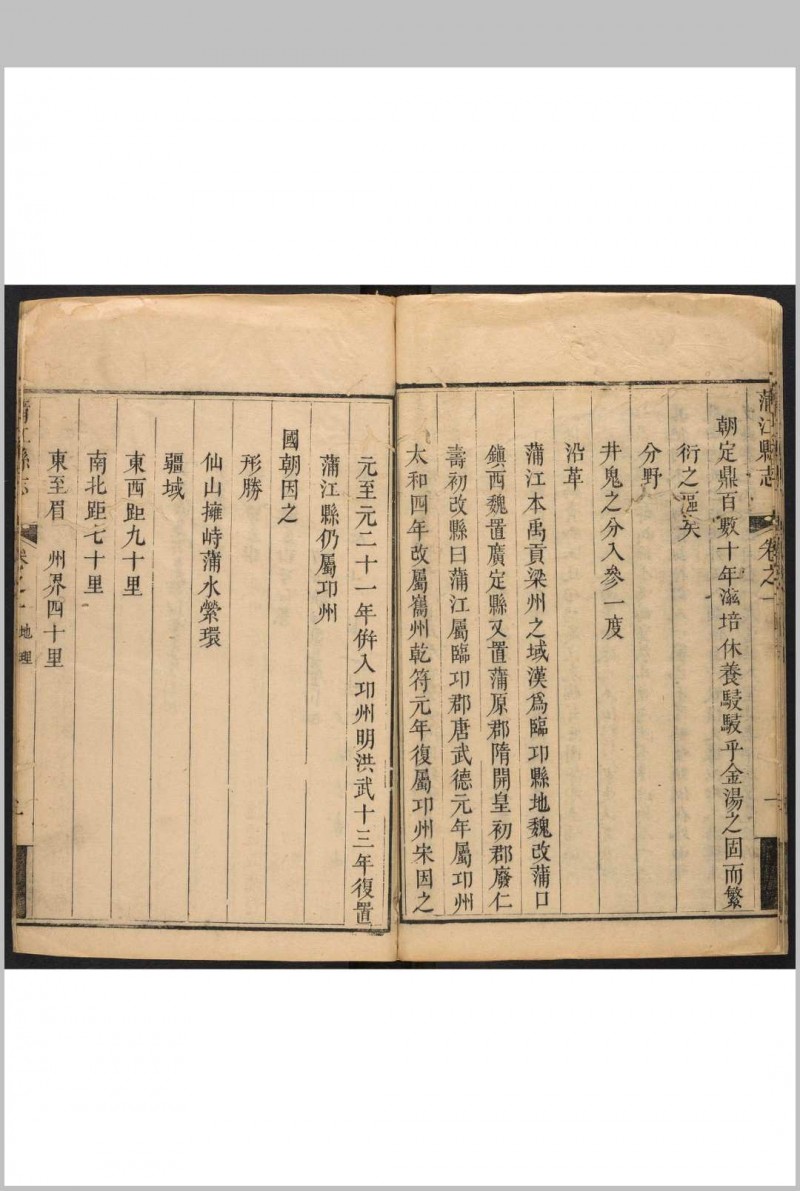 蒲江縣志
卷之一
朝定鼎百數十年滋培休養駸駸乎金湯之固而繁
衍之區矣
分野
井鬼之分入參一度
沿革
蒲江本禹貢梁州之域漢爲臨卭縣地魏改蒲口
鎭西魏置廣定縣又置蒲原郡隋開皇初郡廢仁
壽初改縣曰蒲江屬臨卭郡唐武德元年屬卭州
太和四年改屬巂州乾符元年復屬卭州宋因之
元至元二十一年倂入卭州明洪武十三年復置
蒲江縣仍屬卭州
國朝因之
形勝
仙山擁峙蒲水縈環
疆域
東西距九十里
南北距七十里
東至眉 州界四十里
蒲江縣志
卷之一 地理